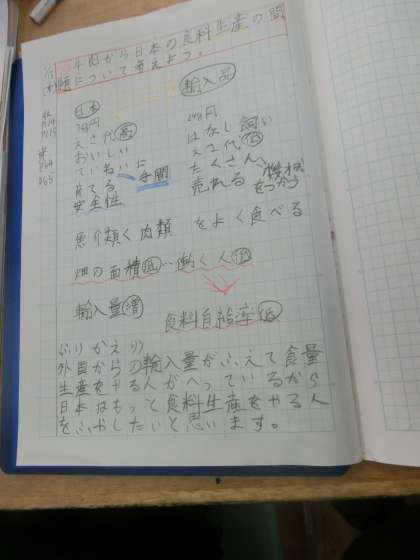 牛肉から日本の食料生産の問
題について考えよう。
日本
輸入品
はなし飼い
えさ代高
えさ代低
おいしい
たくさん
ていねいに
手間
育てる
売れる
機械
をつかう
安全性
魚介類く肉類 をよく食べる
畑の面積低…働く人低
輸入量増
食料自給率低
ふりかえり
外国からの輸入量がふえて食量
生産をやる人がへっているから
日本はもっと食料生産をやる人
をふやしたいと思います。